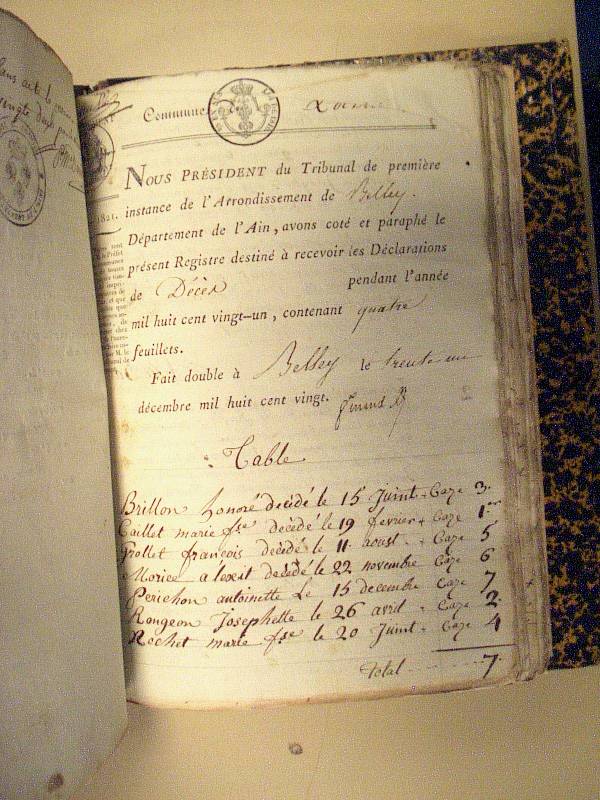 Commune
NOUS PRÉSIDENT du Tribunal de première
instance de l'Arrondissement de Belley.
Département de l'Ain, avons coté et paraphé le
présent Registre destiné à recevoir les Déclarations
de Décès pendant l'année
mil huit cent vingt-un, contenant quatre
feuillets.
Fait double à Belley le trente un
décembre mil huit cent vingt.
Table
Brillon honoré décédé le 15 Juint Caze 3.
Caillet marie fse décédé le 19 fevrier Caze 1er
Grollet françois décédé le 11 aoust Caze 5
Morice alexit décédé le 22 novembre Caze 6
Perichon antoinette Le 15 decembre Caze 7
Rongeon Josephette le 26 avril Caze 2
Rochet marie fse le 20 Juint Caze 4
Total 7.
1821.